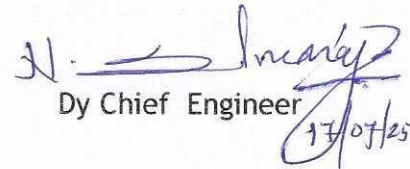 N.
Dy Chief Engineer
17/07/25